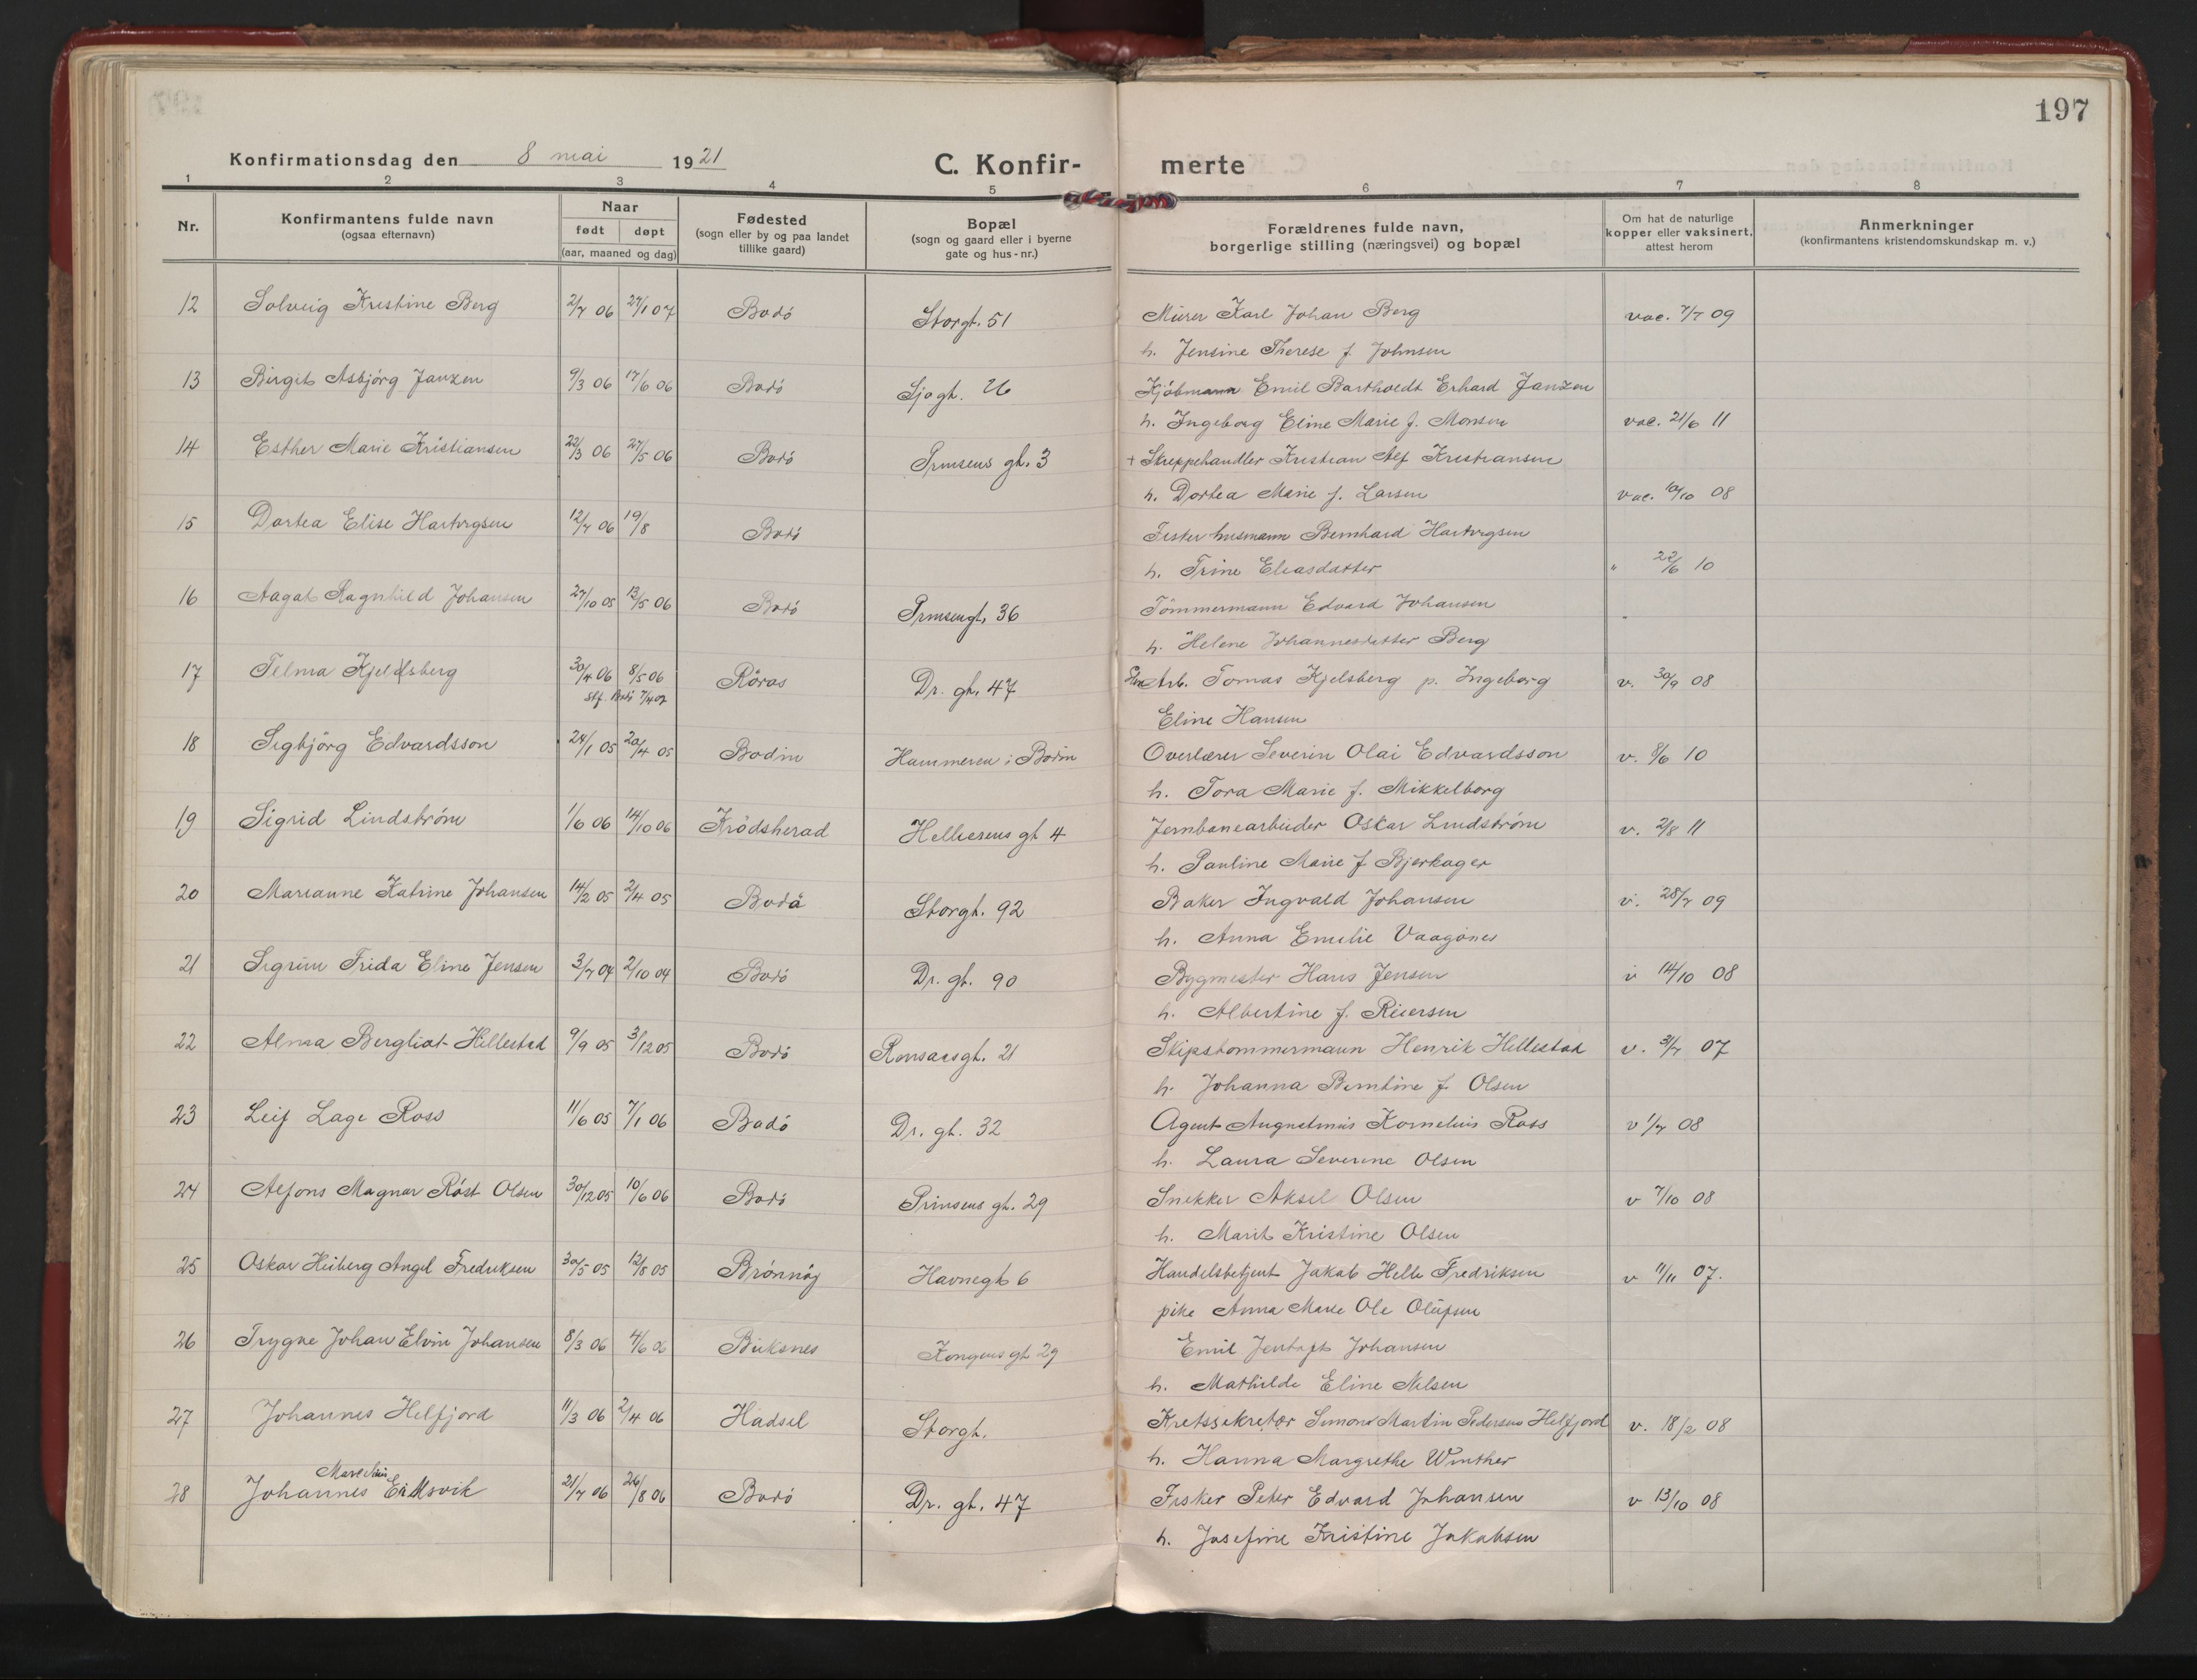 197
Konfirmationsdag den 8 mai 1921
C. Konfirmerte
1 2 3 4 5 6 7 8
Nr.
Konfirmantens fulde navn
(ogsaa efternavn)
Naar
født døpt
(aar, maaned og dag)
Fødested
(sogn eller by og paa landet
tillike gaard)
Bopæl
(sogn og gaard eller i byerne
gate og hus-nr.)
Forældrenes fulde navn,
borgerlige stilling (næringsvei) og bopæl
Om hat de naturlige
kopper eller vaksinert,
attest herom
Anmerkninger
(konfirmantens kristendomskundskap m. v.)
12 Solveig Kristine Berg 2/7 06 27/1 07 Bodö Storgt. 51 Murer Karl Johan Berg vac. 7/7 09
h. Jensine Therese f. Johnsen
13 Birgit Asbjörg Janzen 9/3 06 17/6 06 Bodö Sjøgt. 26 Kjöbmann Emil Bartholdt Erhard Janzen
h. Ingeborg Eline Marie f. Monsen vac. 21/6 11
14 Esther Marie Kristiansen 22/3 06 27/5 06 Bodö Prinsens gt. 3 + Skreppehandler Kristian Alf Kristiansen
h. Dortea Marie f. Larsen vac. 10/10 08
15 Dortea Elise Hartvigsen 12/7 06 19/8 Bodö Fisker husmann Bernhard Hartvigsen
h. Trine Eliasdatter " 22/6 10
16 Aagot Ragnhild Johansen 27/10 05 13/5 06 Bodö Prinsengt. 36 Tömmermann Edvard Johansen
h. Helene Johannesdatter Berg
17 Telma Kjeldsberg 30/4 06 8/5 06 Röros Dr. gt. 47 Arb. Tomas Kjelsberg p. Ingeborg v. 30/9 08
stf. Bodö 7/4 07
Eline Hansen
18 Sigbjörg Edvardsson 24/1 05 20/4 05 Bodin Hammeren i Bodin Overlærer Severin Olai Edvardsson v. 8/6 10
h. Tora Marie f. Mikkelborg
19 Sigrid Lindström 1/6 06 14/10 06 Krödsherad Hellesens gt 4 Jernbanearbeider Oskar Lindström v. 2/8 11
h. Pauline Marie f Bjerkager
20 Marianne Katrine Johansen 14/2 05 2/4 05 Bodö Storgt. 92 Baker Ingvald Johansen v. 28/7 09
h. Anna Emilie Vaagönes
21 Sigrun Frida Eline Jensen 3/7 04 2/10 04 Bodö Dr. gt. 90 Bygmester Hans Jensen v 14/10 08
h. Albertine f. Reiersen
22 Alma Bergliot Hillestad 9/9 05 3/12 05 Bodö Rensaasgt. 21 Skipstömmermann Henrik Hillestad v. 3/7 07
h. Johanna Berntine f. Olsen
23 Leif Lage Ross 11/6 05 7/1 06 Bodö Dr. gt. 32 Agent Augustinus Kornelius Ross v 1/7 08
h. Laura Severine Olsen
24 Alfons Magnar Röst Olsen 30/12 05 10/6 06 Bodö Prinsens gt. 29 Snekker Aksel Olsen v 7/10 08
h. Marit Kristine Olsen
25 Oskar Heiberg Angel Fredriksen 30/5 05 12/8 05 Brönnöy Havnegt 6 Handelsbetjent Jakob Helle Fredriksen v 11/11 07.
pike Anna Marie Ole Olufsen
26 Trygve Johan Elvin Johansen 8/3 06 4/6 06 Buksnes Kongens gt 29 Emil Jentoft Johansen
h. Mathilde Eline Nilsen
27 Johannes Helfjord 11/3 06 2/4 06 Hadsel Storgt. Kretssekretær Simon Martin Pedersen Helfjord v. 18/2 08
h. Hanna Margrethe Winther
28 Johannes Marelius 21/7 06 26/8 06 Bodö Dr. gt. 47 Fisker Peter Edvard Johansen v 13/10 08
h. Josefine Kristine Jakobsen